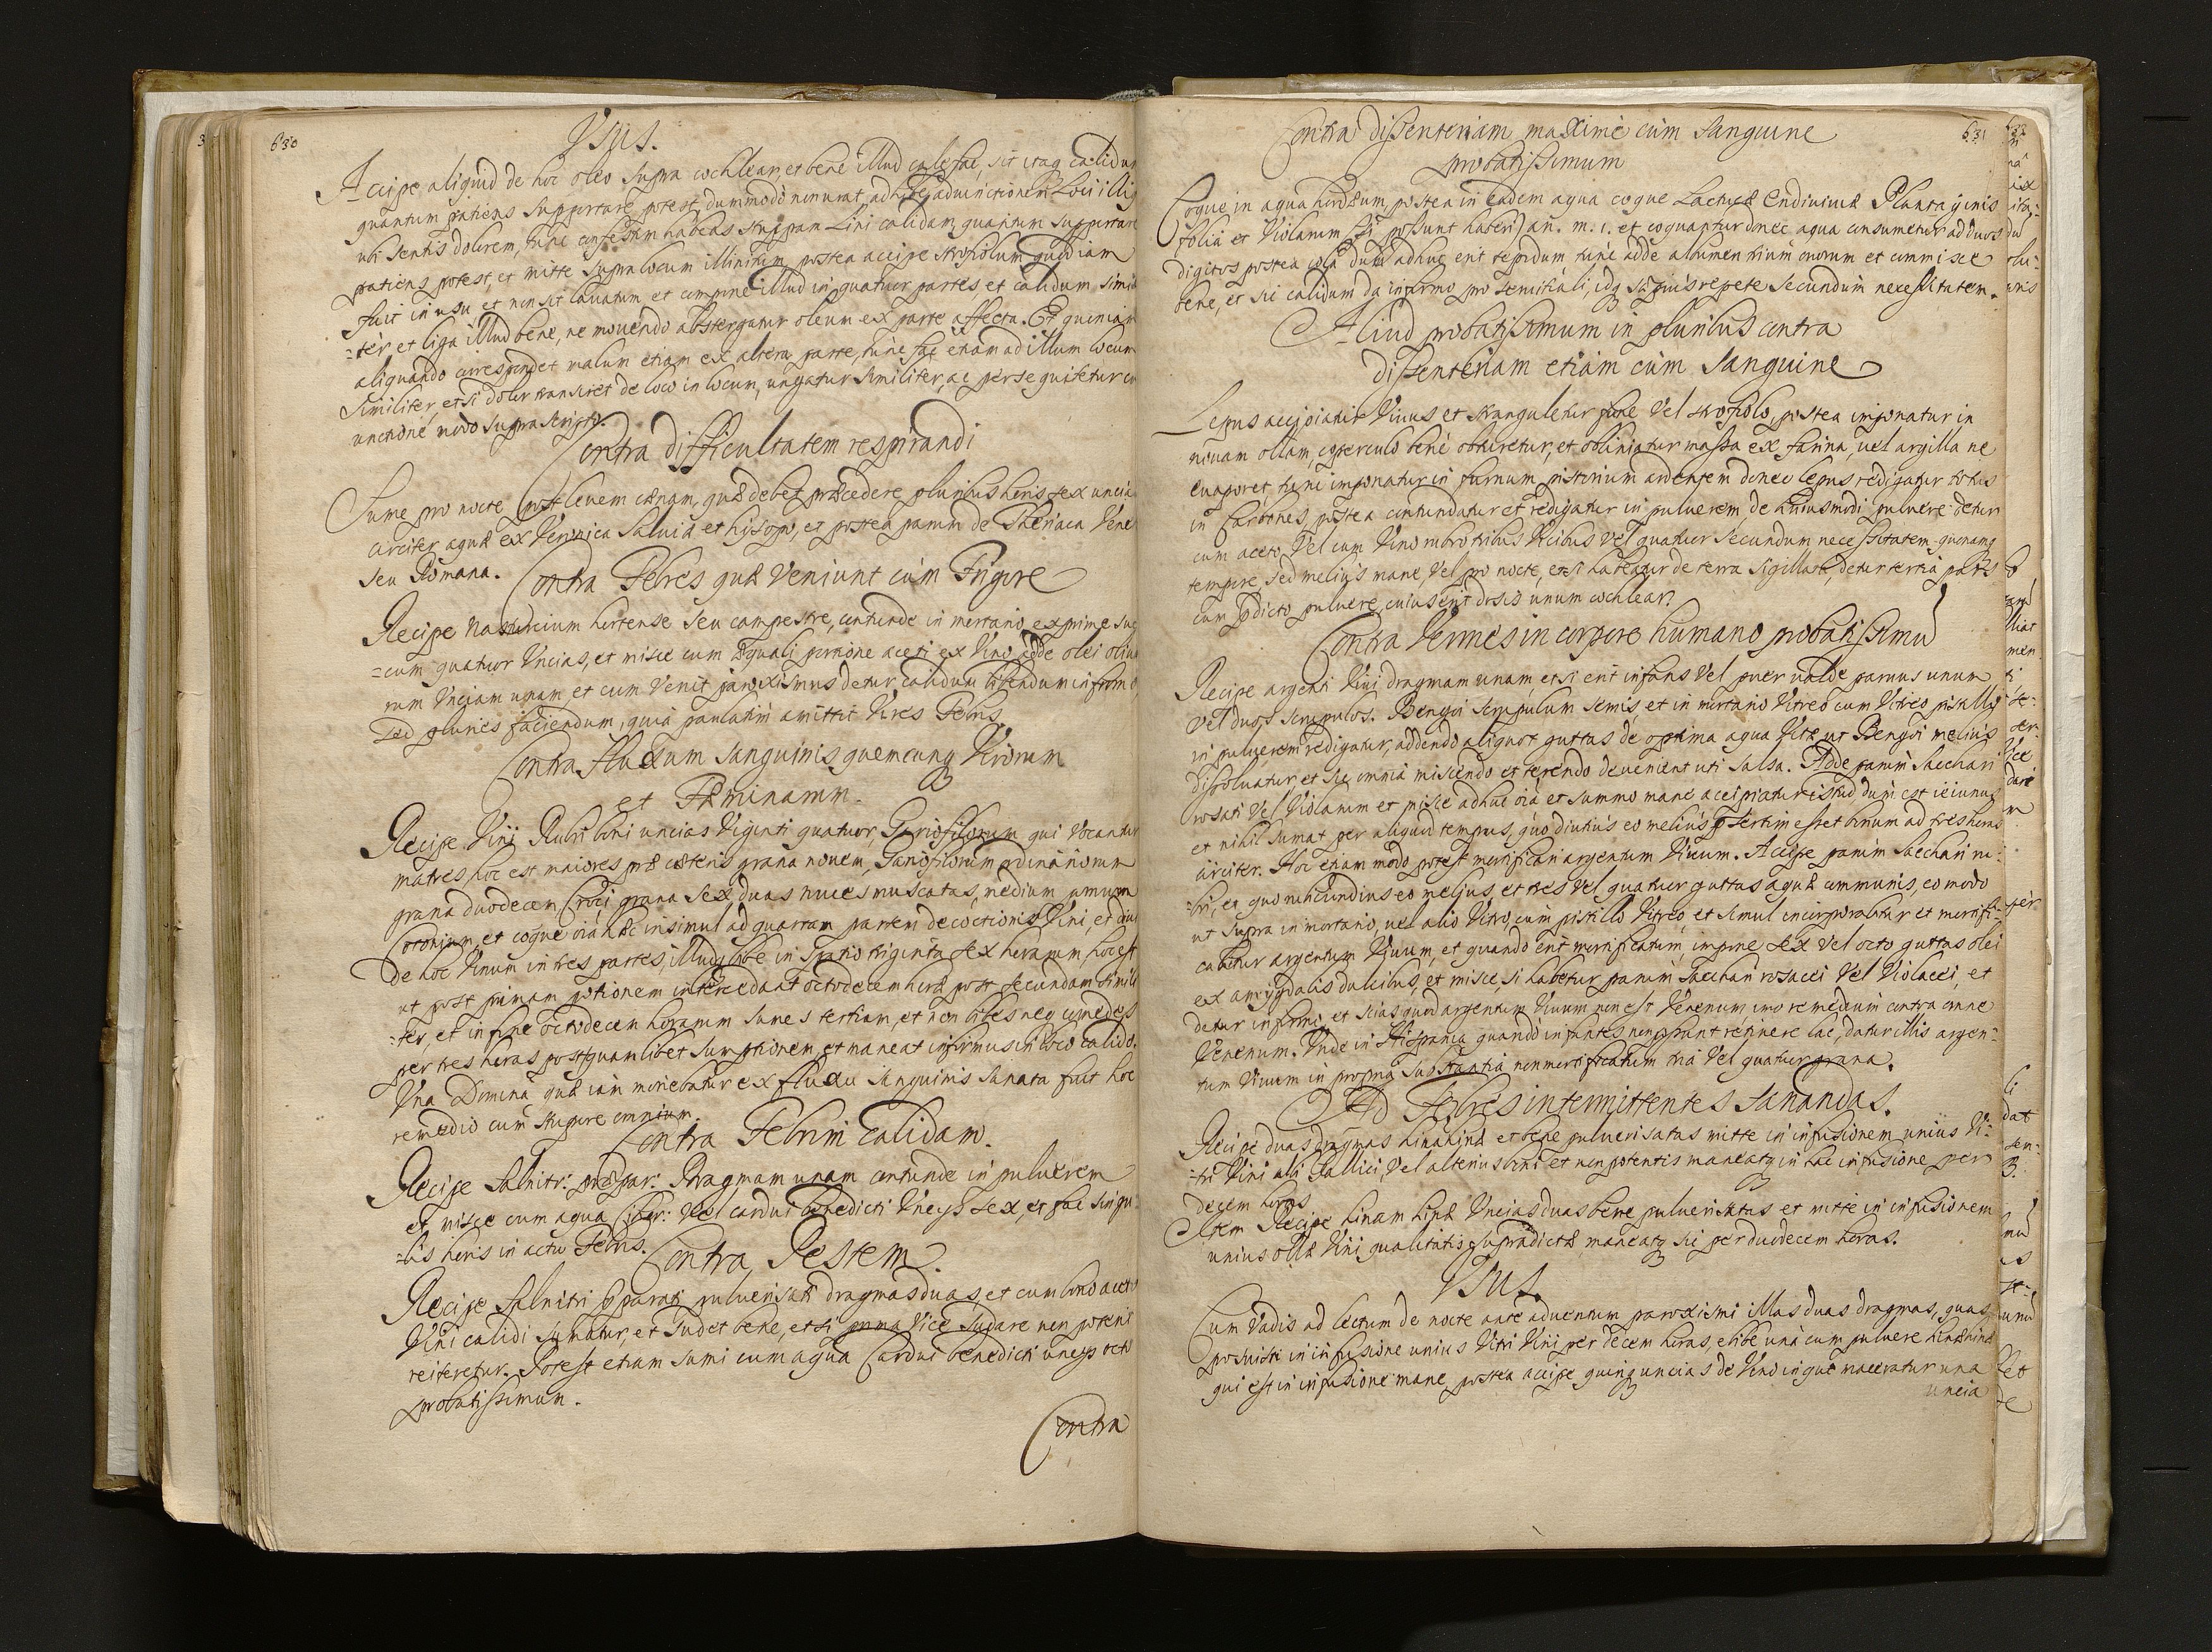 630
Usus.
Accipe aliquid de hoc oleo supra cochlear, et bene illud calefac, sit itaq calidum
quantum patiens supportare potest, dummodò non urat, ad loci illius
ubi sentis dolorem, tunc confestim habeas stuppam Lini calidam, quantum supportare
patiens potest, et mitte supra locum illinitum, postea accipe strofiolum quod iam
fuit in usu et non sit lauatum et compone illud in quatuor partes, et calidum simili
=ter et liga illud bene, ne mouendo abstergatur oleum ex parte affecta. Et quoniam
aliquando correspondet malum etiam ex altera parte, tunc fac etiam ad illum locum
similiter, et si dolor transiret de loco in locum, ungatur similiter, ac persequatur
unctione modo suprascripto.
Contra difficultatem respirandi
Sume pro nocte post leuem cænam, quæ debet præcedere pluribus horis sex uncias
circiter aquæ ex Veronica Saluia et hisopo, et postea parum de Theriaca Vene
seu Romana.
Contra Febres quæ Veniunt cùm Frigore
Recipe Nasturcium hortense seu campestre, contunde in mortario, exprime suc
=cum quatuor Vncias, et misce cum æquali portione aceti ex Vino adde olei oliua
rum Vnciam unam, et cum venit paroxismus detur calidum bibendum infirmo,
sed pluries faciendum, quià paulatim amittit Vires Febris.
Contra fluxum sanguinis quemcunq Virorum
et Fæminarum.
Recipe Vini Rubri boni uncias Viginti quatuor, Gariofilorum qui vocantur
matres, hoc est maiores præ cæteris grana nouem, Gariofilorum ordinariorum
grana duodecem, Croci grana sex, duas nuces muscatas, medium pomum
Cotonium, et coque oia hæc insimul ad quartam partem decoctionis Vini, et diui
de hoc Vinum in tres partes, illudq bibe in spatio triginta sex horarum, hoc est
ut post primam potionem intercedant octodecem horæ post secundam simili
=ter, et in fine octodecem horarum sumes tertiam, et non bibes neq comedes
per tres horas post quamlibet sumptionem, et maneat infirmus in loco calido.
Vna Domina quæ iam moriebatur ex fluxu sanguinis sanata fuit hoc
remedio cum stupore omnium.
Contra Febrim Calidam.
Recipe Salnitr: præpar: Dragmam unam contunde in puluerem
et misce cum aqua Cichor: Vel cardui benedicti Vncijs sex, et fac singu=
=lis horis in actu Febris.
Contra Pestem.
Recipe Salnitri pparati puluerisati dragmas duas, et cum bono aceto
Vini calidi sumatur, et sudet bene, et si prima Vice sudare non poterit
reiteretur. Potest etiam sumi cum aqua Cardui benedicti uncijs octo
probatissimum.
Contra
631
Contra dissenteriam maximè cùm Sanguine
probatissimum
Coque in aqua hordeum, postea in eadem aqua coque Lactucæ Endiuiæ Plantaginis
folia et Violarum (si possunt haberi) añ. m. 1. et coquantur donec aqua consumetur ad duos
digitos postea cola dum adhuc erit tepidum tunc adde albumen trium ouorum et commisce
bene, et sic calidum da infirmo pro seruitiali, idq sæpius repete secundùm necessitatem.
Aliud probatissimum in pluribus contra
dissenteriam etiàm cùm Sanguine
Lepus accipiatur Viuus et stranguletur fune vel strofiolo, postea imponatur in
nouam ollam, coperculo benè obturetur, et obliniatur massa ex farina, uel argilla ne
euaporet, tunc imponatur in furnum pistorium ardentem donec lepus redigatur totus
in Carbones, postea contundatur et redigatur in puluerem, de huiusmodi puluere detur
cum aceto, Vel cum Vino rubro tribus Vicibus vel quatuor secundum necessitatem quocunq
tempore sed meliùs mane, Vel pro nocte, et si habeatur de terra sigillata, detur tertia pars
cum pdicto puluere, cuius erit dosis unum cochlear.
Contra Vermes in corpore humano probatissimu
Recipe argenti Viui dragmam unam, et si erit infans vel puer ualde paruus unum
vel duos scrupulos. Bengoi scrupulum semis, et in mortario Vitreo cum Vitreo pistillo
in puluerem redigatur, addendo aliquot guttas de optima aqua Vitæ ut Bengoi melius
dissoluatur, et sic omnia miscendo et terendo deuenient uti salsa. Adde parùm Sacchari
rosati vel Violarum et misce adhuc oia et summo mane accipiatur istud dum est ieiunus
et nihil sumat per aliquid tempus, quo diutiùs eo meliùs psertim esset bonum ad tres horas
circiter. Hoc etiam modo potest mortificari argentum Viuum. Accipe parùm Sacchari ru=
=bri, ea quo rubicundius eo melius, et tres vel quatuor guttas aquæ communis, eo modo
ut supra in mortario, uel alio Vitro, cum pistillo Vitreo, et simul incorporabitur et mortifi=
cabitur argentum Viuum, et quando erit mortificatum, impone sex vel octo guttas olei
ex amygdalis dulcibus, et misce, si habetur parum Sacchari rosacei vel Violacei, et
detur infirmo, et scias quod argentum Viuum non est Venenum, imo remedium contra omne
Venenum. Vnde in Hispania quando infantes non possunt retinere lac, datur illis argen=
tum Viuum in propria substantia non mortificatum tria vel quatuor grana.
Ad Febres intermittentes Sanandas.
Recipe duas dragmas kinakinæ et bene puluerisatas mitte in infusionem unius Vi=
=tri Vini albi Gallici, vel alterius boni et non potentis maneatq in hac infusione per
decem horas
Item Recipe kinam kinæ Vncias duas bene puluerisatas et mitte in infusionem
unius ollæ Vini qualitatis supradictæ maneatq sic per duodecem horas.
Usus.
Cum Vadis ad lectum de nocte ante aduentum paroxismi illas duas dragmas, quas
posuisti in infusione unius Vitri Vini per decem horas, ebibe unà cum puluere kinækinæ
qui est in infusione mane postea accipe quinq uncias de Vino in quo maceratur una
uncia